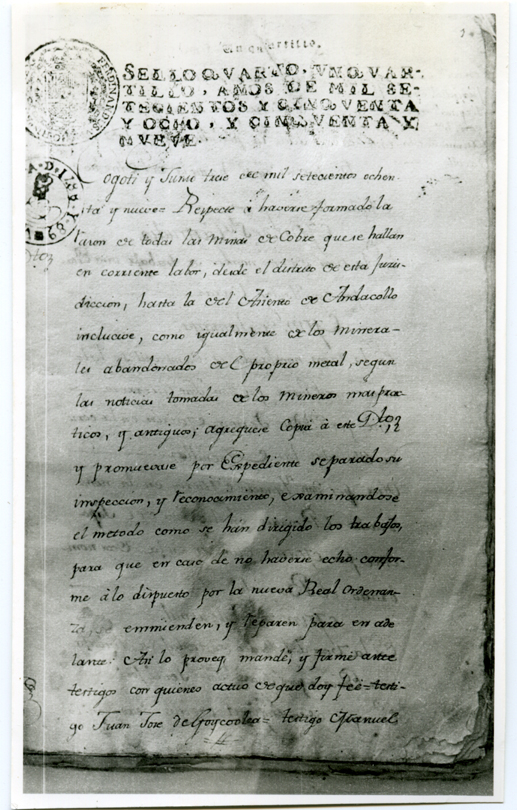 Un quartillo.
SELLO QVARTO, VN QVAR-
TILLO, AÑOS DE MIL SE-
TECIENTOS Y CINQVENTA
Y OCHO, Y CINQVENTA Y
NVEVE.
ogoti y Junio trece de mil setecientos ochen-
ta y nueve= Respecto à haverse formado la
razon de todas las Minas de Cobre que se hallan
en corriente labor, desde el distrito de esta Juris-
diccion, hasta la del Asiento de Andacollo
inclucive, como igualmente de los Minera-
les abandonados del proprio metal, segun
las noticias tomadas de los Mineros mas prac-
ticos, y antiguos; agreguese Copia à este
y promuevase por Expediente separado su
inspeccion, y reconocimiento, examinandose
el metodo como se hán dirigido los trabajos,
para que en caso de no haverse echo confor-
me à lo dispuesto por la nueva Real Ordenan-
za, se emmienden, y reparen para en ade
lante. Asi lo proveý, mandé, y firmé ante
testigos con quienes actuo de que doy feè= testi-
go Juan Jose de Goycoolea= testigo Manuel